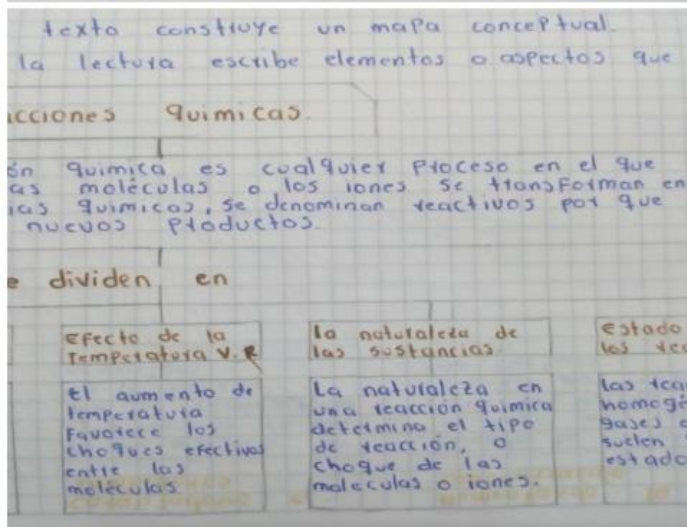 texto construye un mapa conceptual.
la lectura escribe elementos o aspectos que
acciones quimicas.
ón quimica es cualquier proceso en el que
as moléculas o los iones se transforman en
ias quimicas, se denominan reactivos por que
nuevos productos.
e dividen en
Efecto de la
Temperatura V.R
El aumento de
temperatura
Favorece los
choques efectivos
entre las
moléculas
la naturaleza de
las sustancias
La naturaleza en
una reacción quimica
determina el tipo
de reacción, o
choque de las
moleculas o iones.
Estado
los rea
las rea
homogé
gases o
suelen
estado